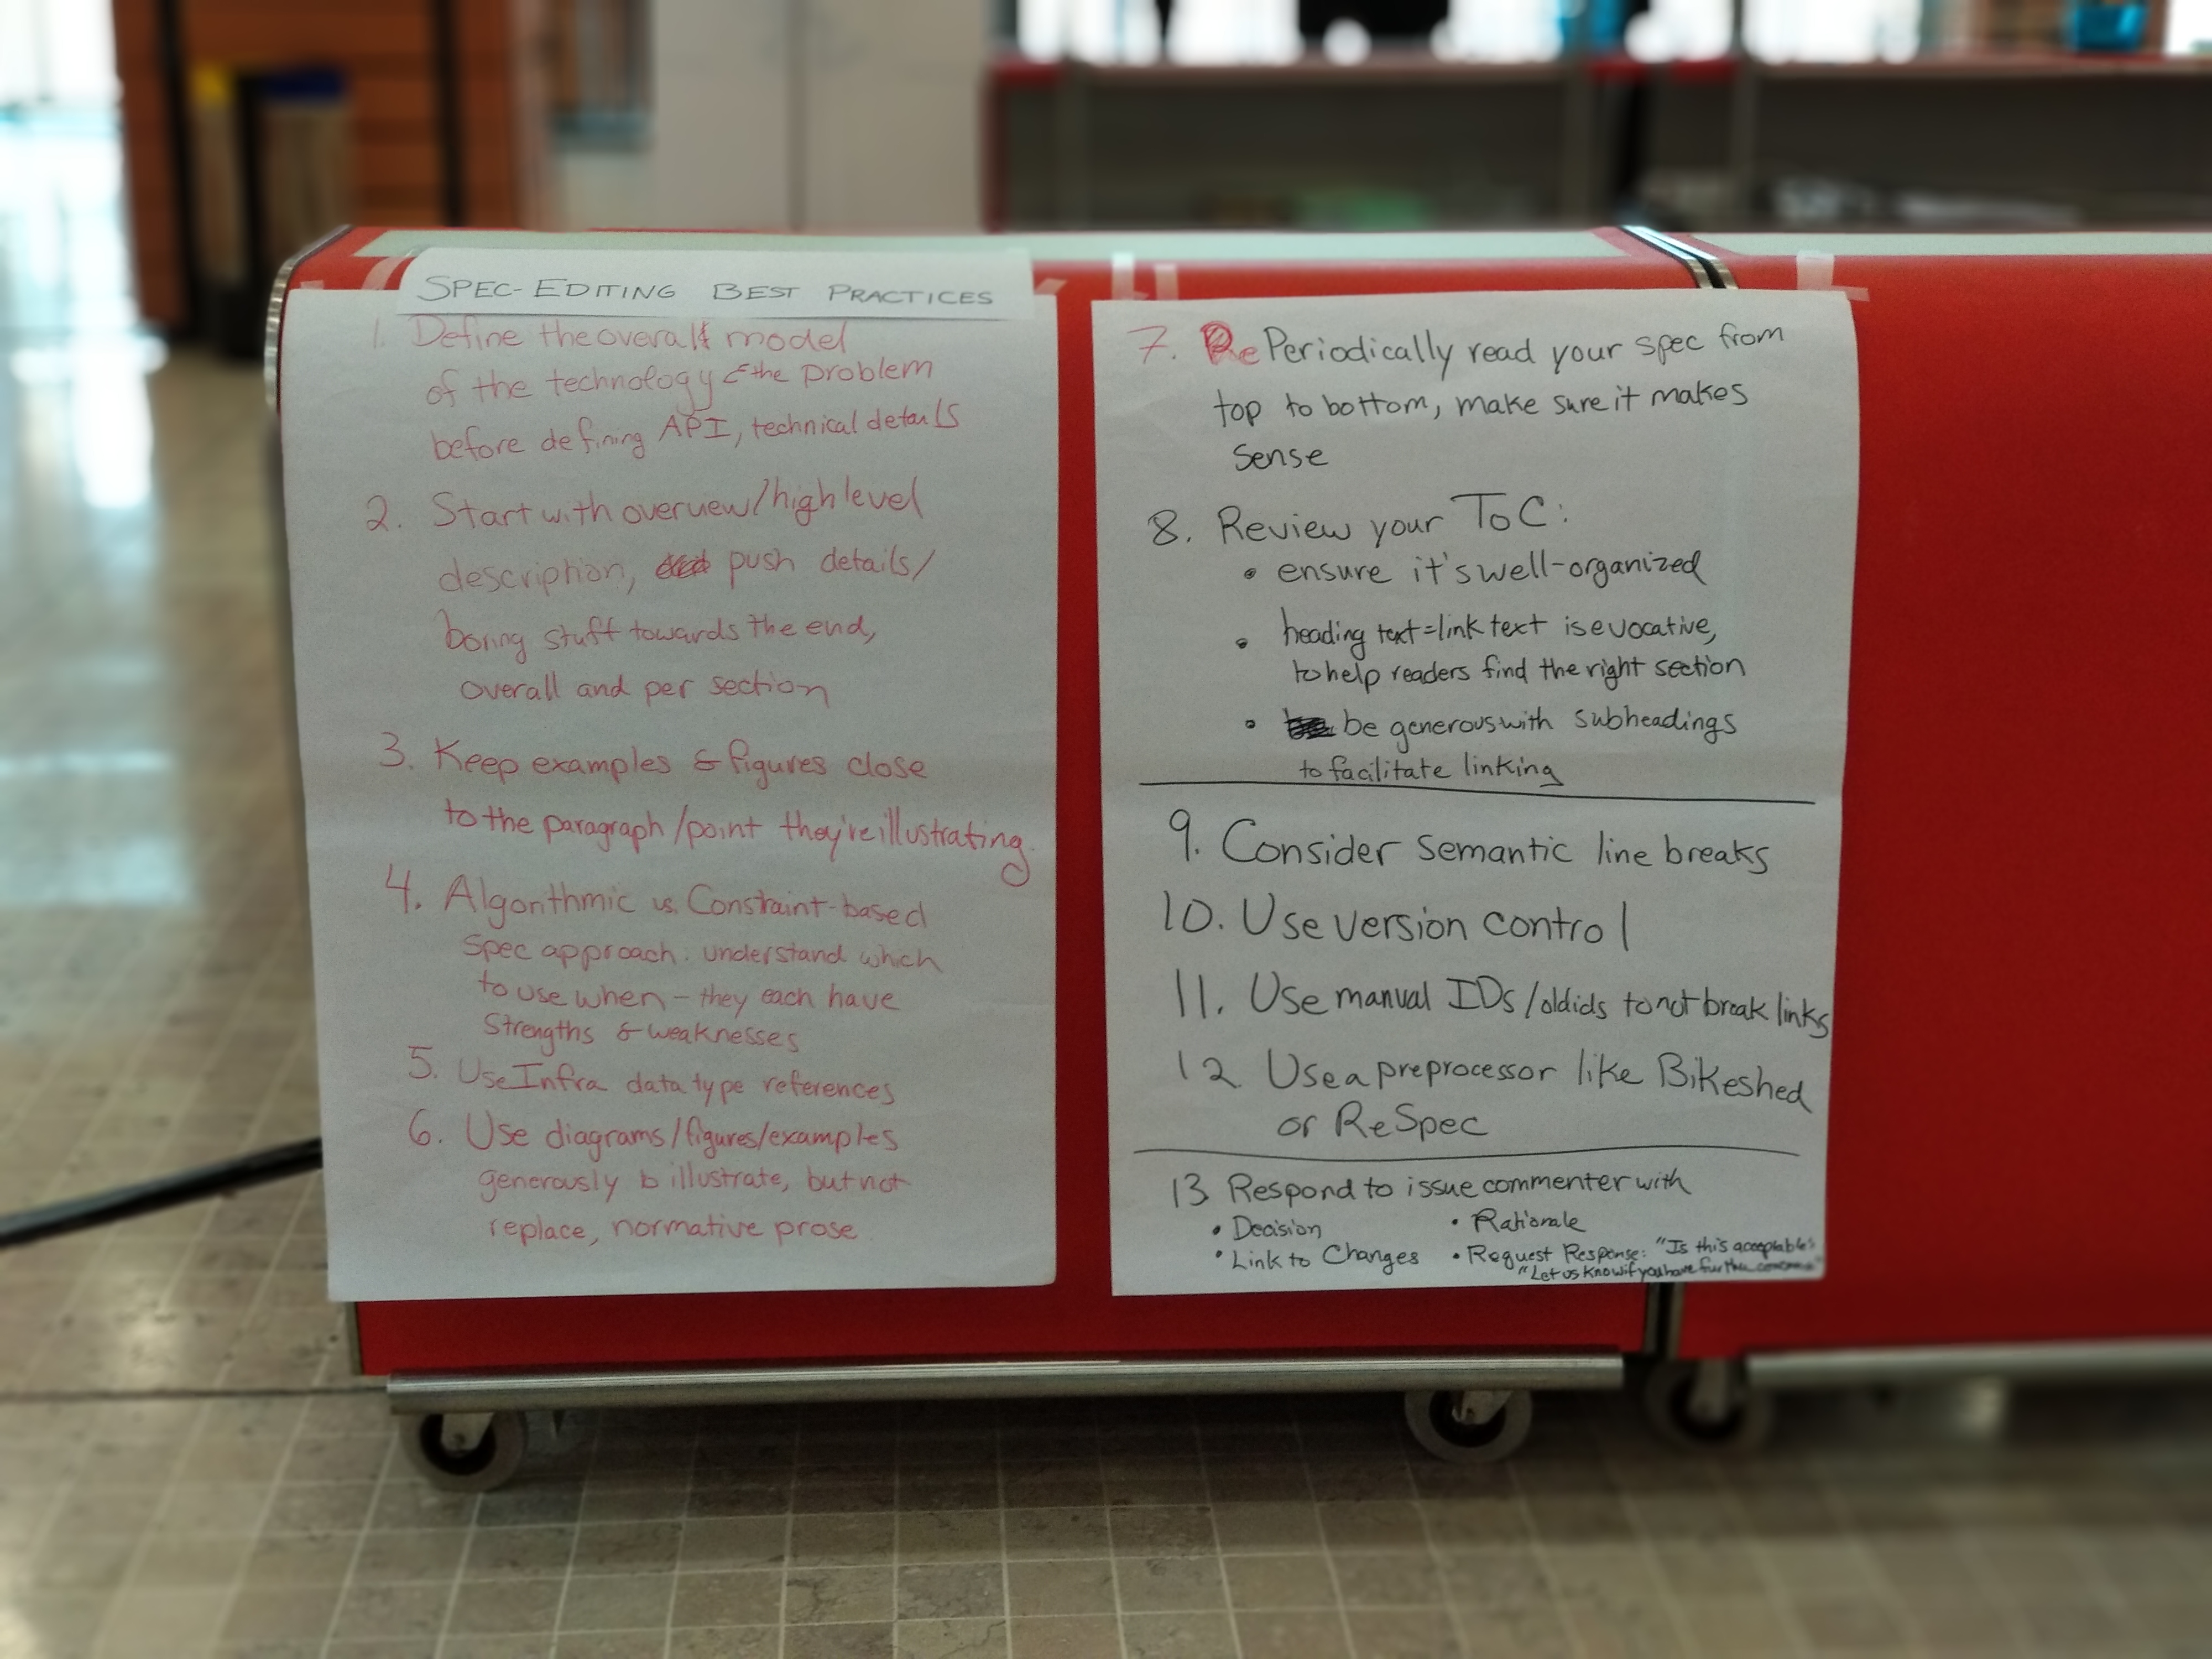 SPEC-EDITING BEST PRACTICES
1. Define the overall model
of the technology & the problem
before defining API, technical details
2. Start with overview/high level
description, push details/
boring stuff towards the end,
overall and per section
3. Keep examples & figures close
to the paragraph/point they're illustrating.
4. Algorithmic vs. Constraint-based
Spec approach. understand which
to use when - they each have
Strengths & weaknesses
5. Use Infra data type references
6. Use diagrams/figures/examples
generously to illustrate, but not
replace, normative prose
7. Periodically read your spec from
top to bottom, make sure it makes
Sense
8. Review your ToC:
• ensure it's well-organized
• heading text=link text is evocative,
to help readers find the right section
• be generous with subheadings
to facilitate linking
9. Consider semantic line breaks
10. Use version control
11. Use manual IDs/oldids to not break links
12. Use a preprocessor like Bikeshed
or ReSpec
13 Respond to issue commenter with
• Decision • Rationale
• Link to Changes • Request Response: "Is this acceptable"
"Let us know if you have further concerns"